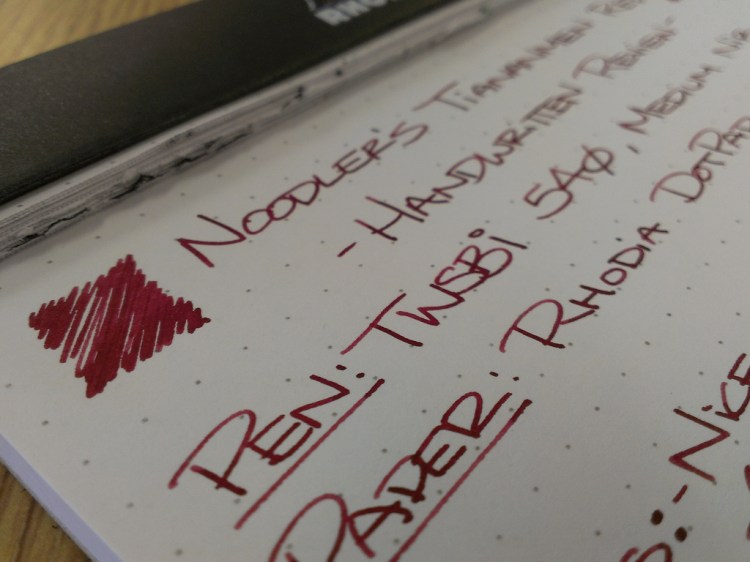 NOODLER'S TIANANMEN
- HANDWRITTEN REVIEW -
PEN: TWSBI 540, MEDIUM NIB
PAPER: RHODIA DOTPAD
:- NICE